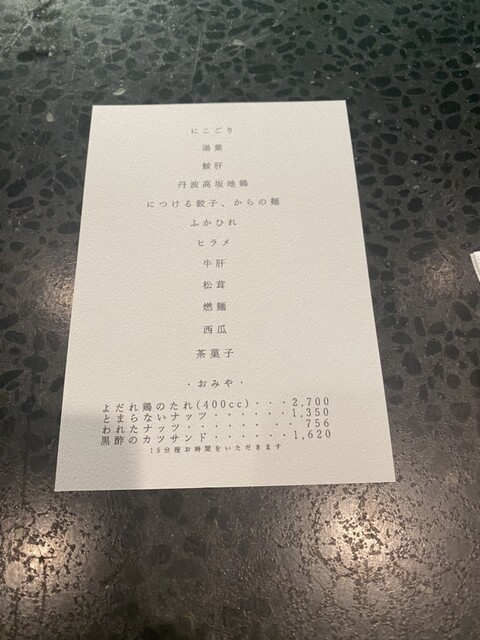 にこごり
湯葉
鮟肝
丹波高坂地鶏
につける餃子、からの麺
ふかひれ
ヒラメ
牛肝
松茸
燃麺
西瓜
茶菓子
・おみや・
よだれ鶏のたれ(400cc)・・・2,700
とまらないナッツ・・・・・・1,350
われたナッツ・・・・・・・・756
黒酢のカツサンド・・・・・・1,620
15分程お時間をいただきます